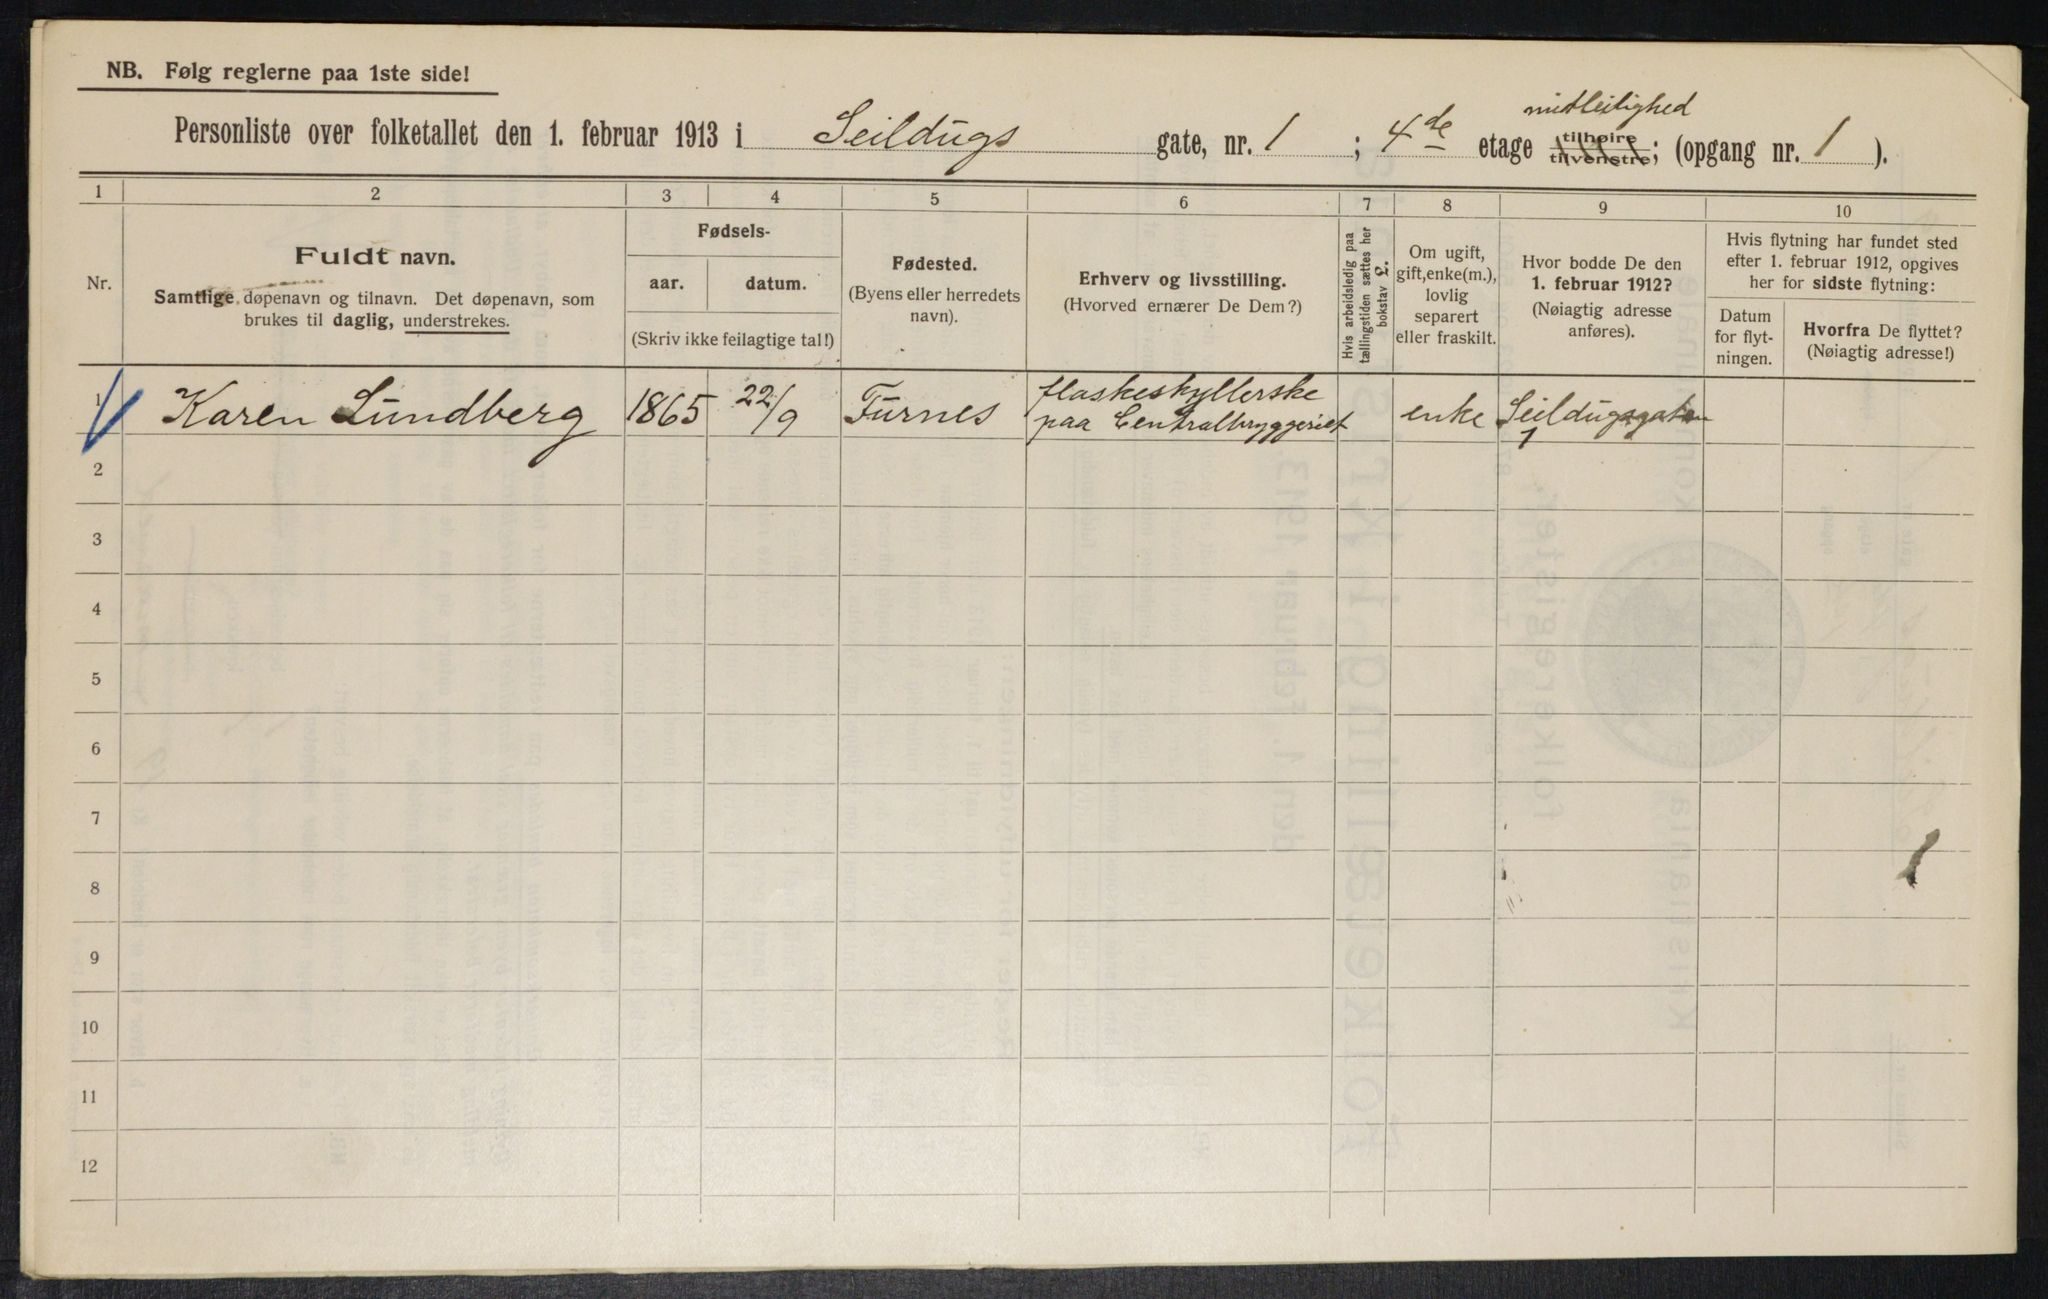 NB. Følg reglerne paa 1ste side!
midtleilighed
Personliste over folketallet den 1. februar 1913 i Seildugs gate, nr. 1 ; 4de etage tilhøire tilvenstre; (opgang nr. 1 ).
1 2 3 4 5 6 7 8 9 10
Nr.
Fuldt navn.
Samtlige døpenavn og tilnavn. Det døpenavn, som
brukes til daglig, understrekes.
Fødsels-
aar. datum.
(Skriv ikke feilagtige tal!)
Fødested.
(Byens eller herredets
navn).
Erhverv og livsstilling.
(Hvorved ernærer De Dem?)
Hvis arbeidsledig paa
tællingstiden sættes her
bokstav £.
Om ugift,
gift, enke(m.),
lovlig
separert
eller fraskilt.
Hvor bodde De den
1. februar 1912?
(Nøiagtig adresse
anføres).
Hvis flytning har fundet sted
efter 1. februar 1912, opgives
her for sidste flytning:
Datum
for flyt-
ningen.
Hvorfra De flyttet?
(Nøiagtig adresse!)
1 Karen Lundberg 1865 22/9 Furnes flaskeskyllerske
paa Centralbryggeriet enke Seildugsgaten
1
2
3
4
5
6
7
8
9
10
11
12